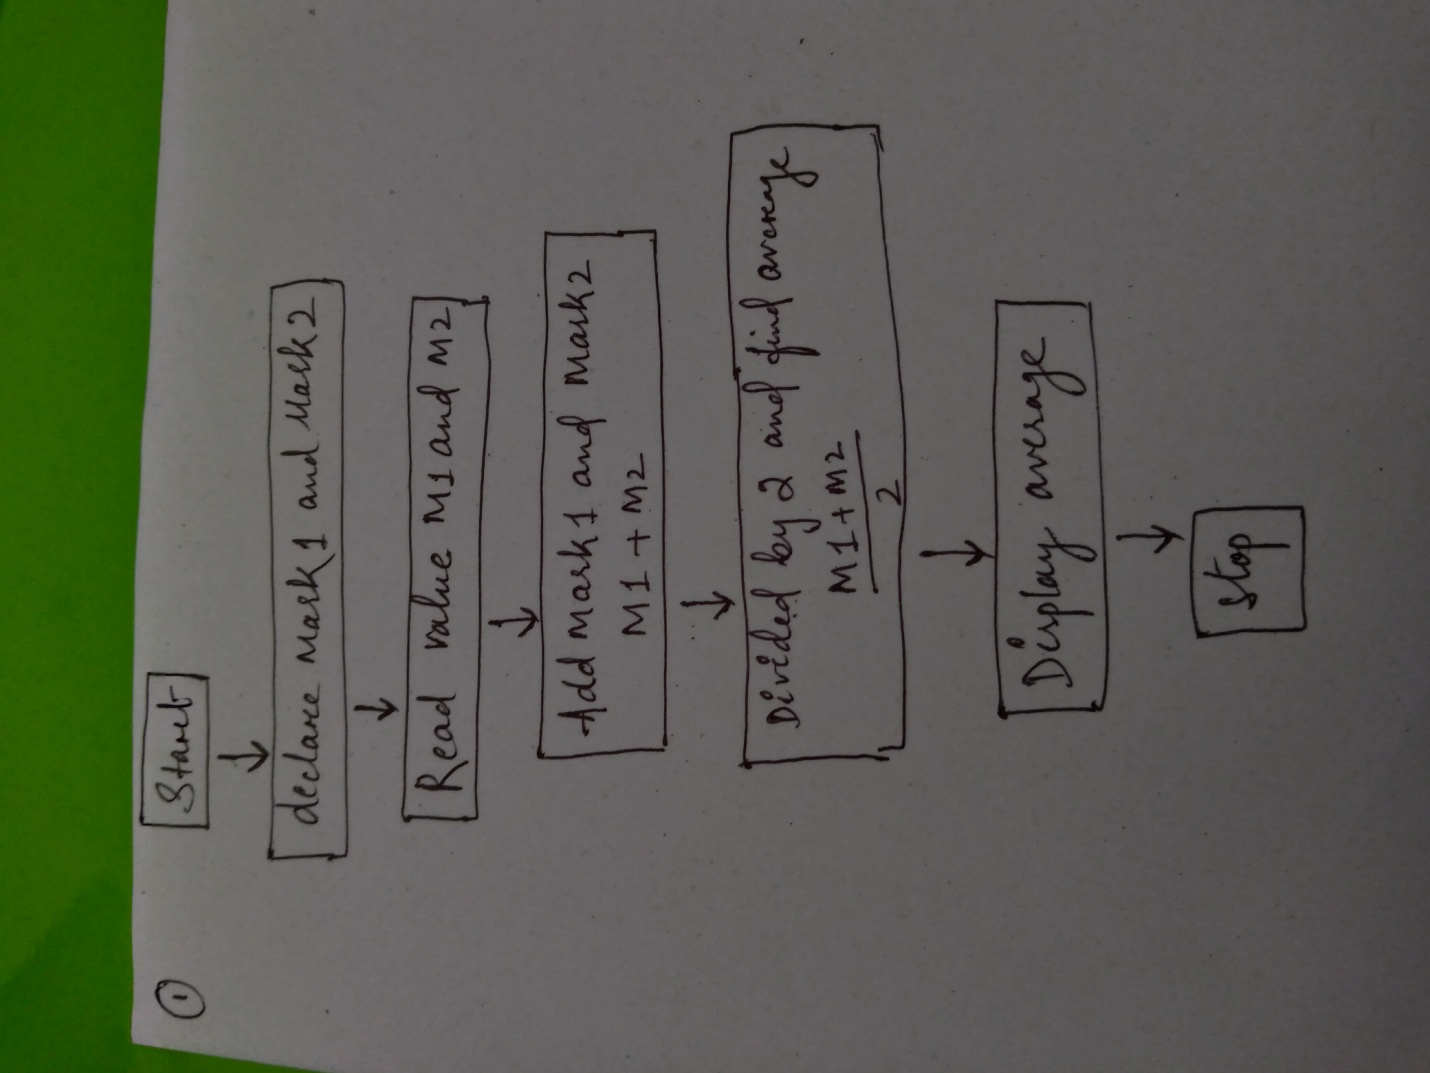 1
Start
declare mark1 and Mark2
Read value M1 and M2
Add mark1 and mark2
M1 + M2
Divided by 2 and find average
M1+M2
2
Display average
Stop